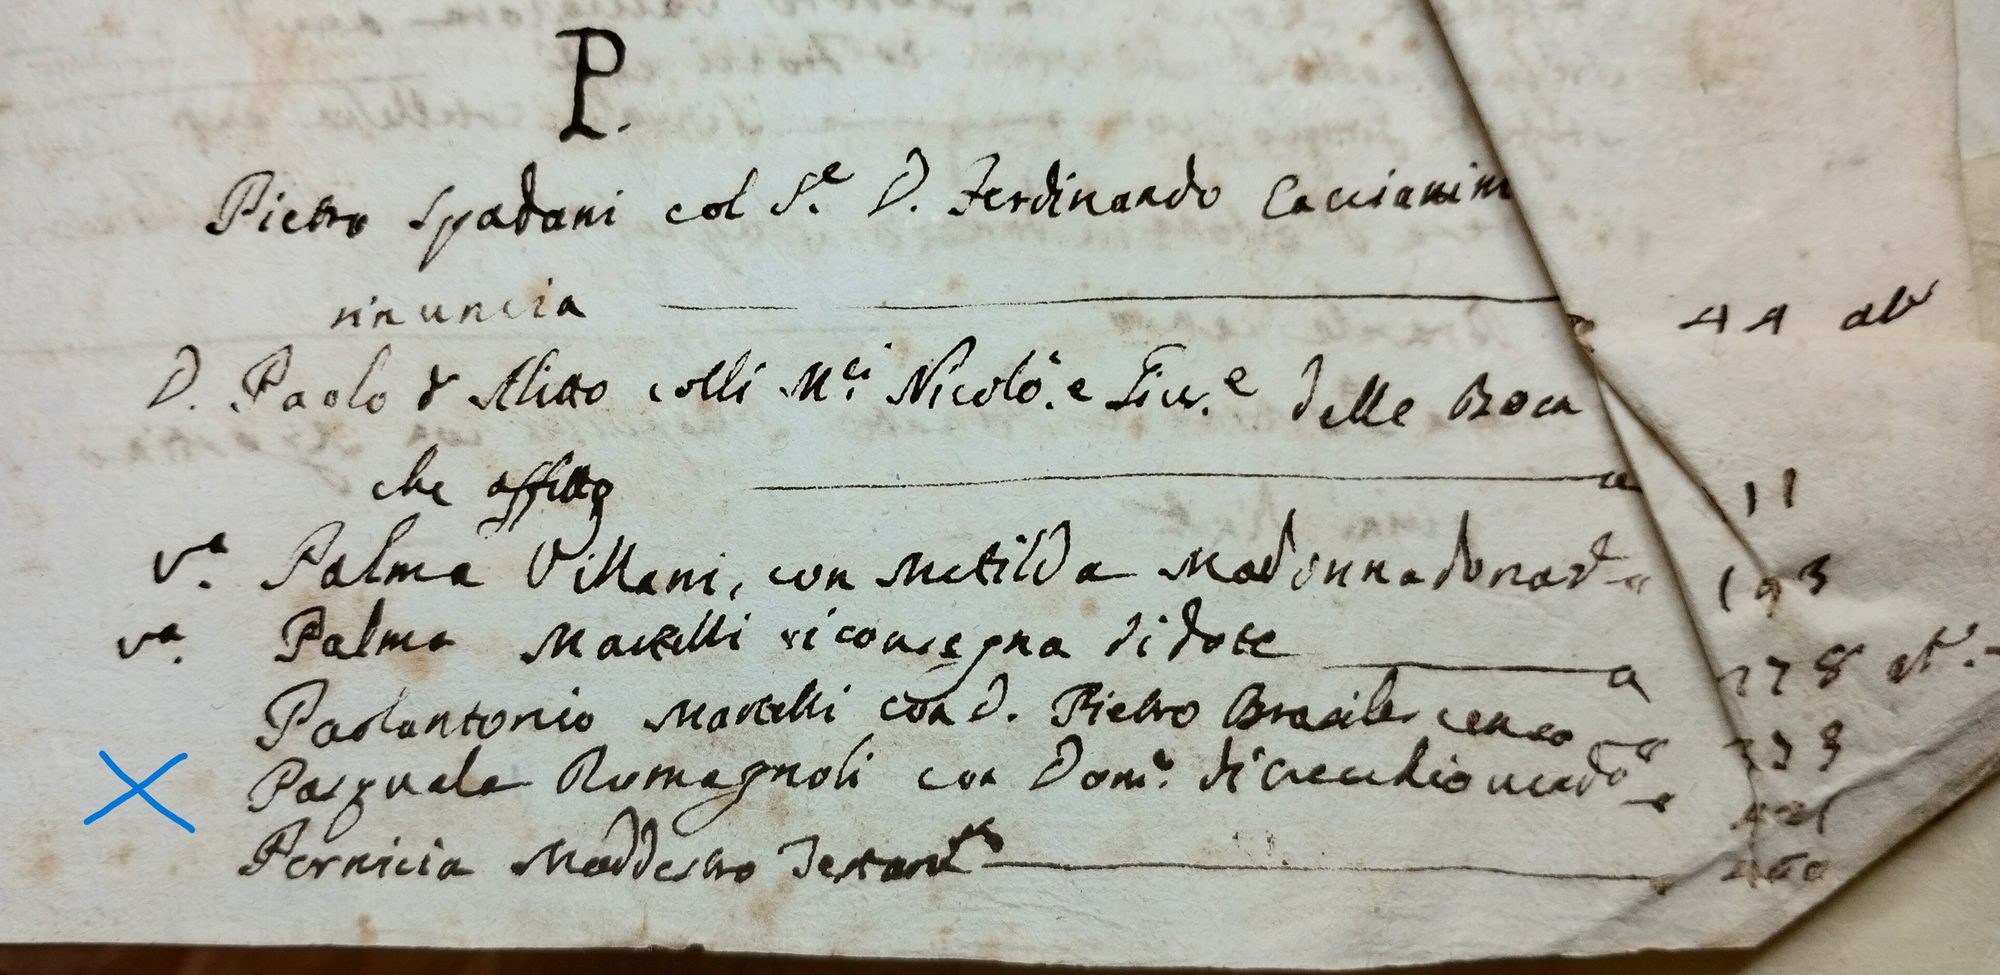 P.
Pietro Spadani col S.e D. Ferdinando Caccianin
rinuncia 44 at
D. Paolo d'Alitto colli M.ci Nicolò. e Giu.e delle Boca
che affitto a 11
V.a Palma Villani, con Metilda Madonna donat a 193
V.a Palma Martelli riconsegna di dote a 278 at.
Paolantonio Martelli con D. Pietro Brasile censo a
Pasquale Romagnoli con Dom.o di Crecchio
Pernicia Maddestro Testam.to 460